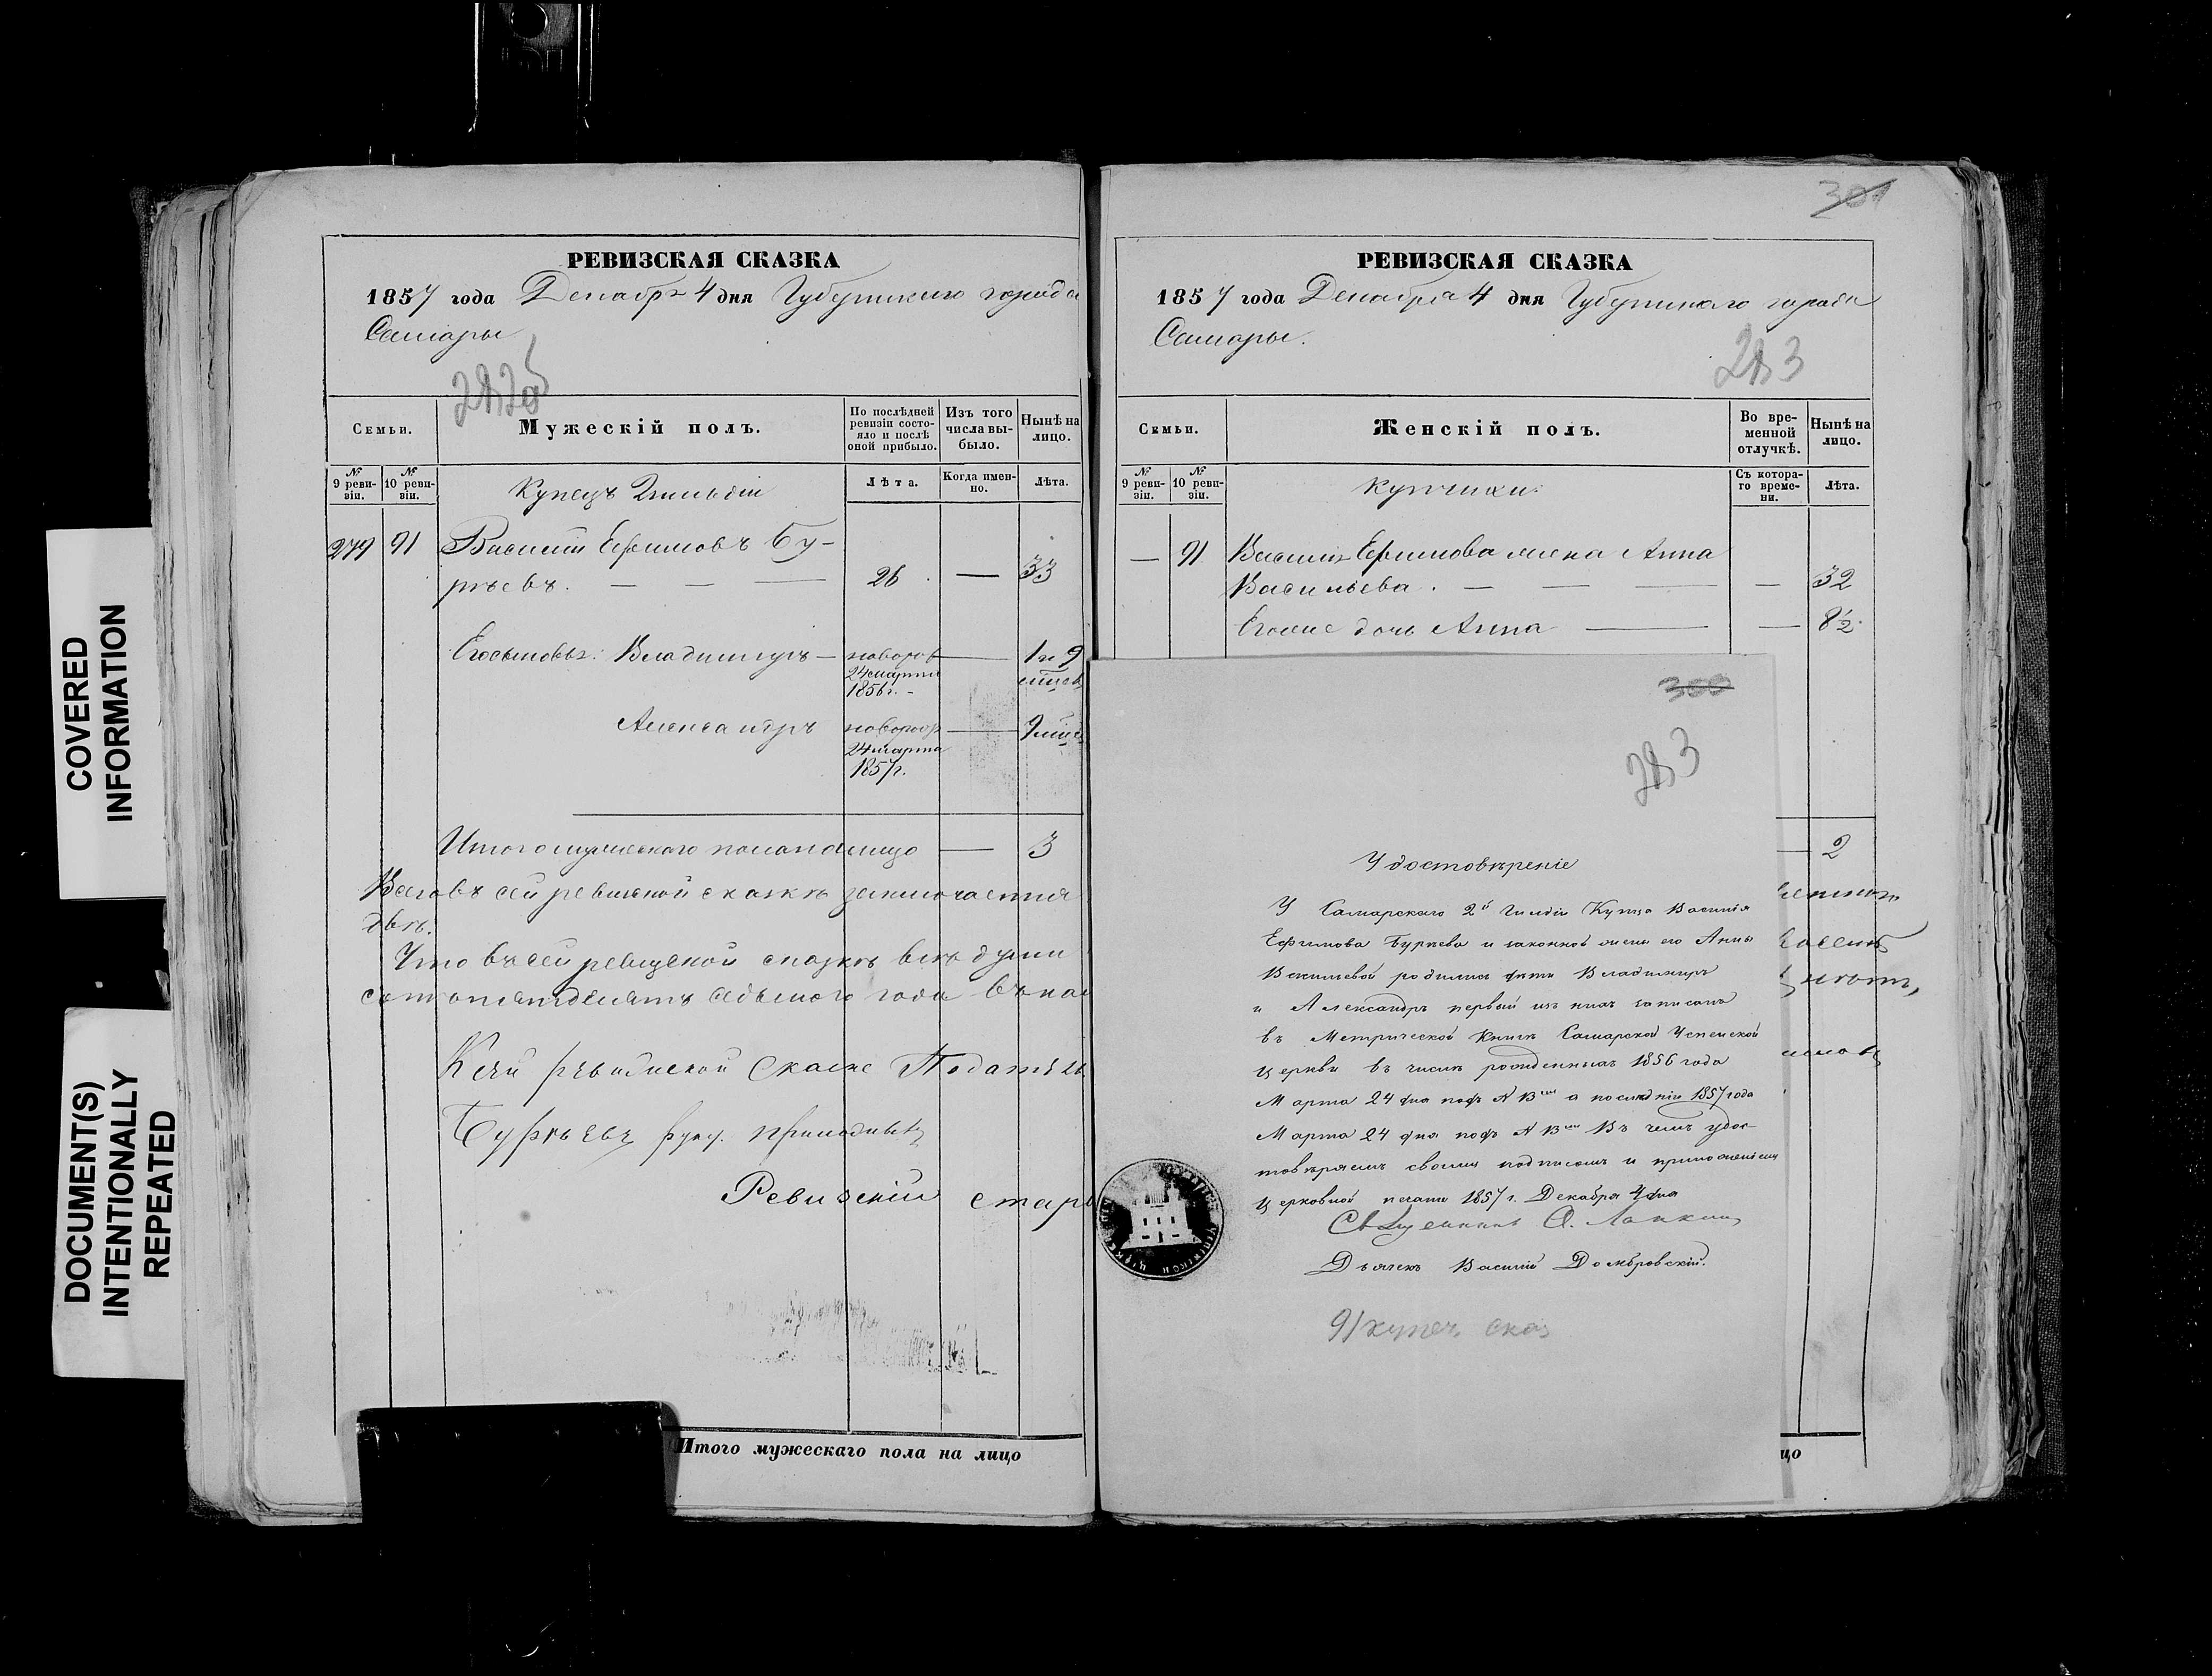 COVERED
INFORMATION
DOCUMENT(S)
INTENTIONALLY
REPEATED
РЕВИЗСКАЯ СКАЗКА
1857 года Декабря 4 дня Губернскаго города
Самары
282об
Семьи.
Мужескій полъ.
По послѣдней ревизіи состояло и послѣ оной прибыло.
Изъ того числа выбыло.
Нынѣ на лицо.
№ 9 ревизіи.
№ 10 ревизіи.
Купецъ 2 гильдіи
Лѣта.
Когда именно.
Лѣта.
279 91 Василій Ефимовъ Бу-
рѣевъ. — — — 26 — 33
Его сыновья: Владимиръ — новорож 24 марта 1856 г. — 1 и 9 мѣсяц
Александръ новорож 24 марта 1857 г. — 9 мѣс
Итого мужескаго пола на лицо — 3
Всего въ сей ревизской сказкѣ заключается
двѣ.
Что въ сей ревизской сказкѣ всѣ души
сотъ пятьдесятъ седьмого года въ на
К сей ревизской скаске
Бурѣевъ руку приложилъ
Ревизскій стар
Итого мужескаго пола на лицо
301
РЕВИЗСКАЯ СКАЗКА
1857 года Декабря 4 дня Губернскаго города
Самары.
283
Семьи.
Женскій полъ.
Во временной отлучкѣ.
Нынѣ на лицо.
№ 9 ревизіи.
№ 10 ревизіи.
Купчихи:
Съ котораго времени.
Лѣта.
— 91 Василія Ефимова жена Анна
Васильева. — — — — 32
Его же дочь Анна — — 8½
— 2
300
283
Удостовѣреніе
У Самарскаго 2й Гильдіи Купца Василія
Ефимова Бурѣева и законной жены его Анны
Васильевой родились дѣти Владимиръ
и Александръ первый изъ нихъ записанъ
въ Метрической Книгѣ Самарской Успенской
церкви въ числѣ рожденныхъ 1856 года
Марта 24 дня подъ № 13мъ а послѣдній 1857 года
Марта 24 дня подъ № 13мъ Въ чемъ удос-
товѣряемъ своимъ подписомъ и приложеніемъ
церковной печати 1857 г. Декабря 4 дня
Священникъ
Дьячекъ Василій Домбровскій.
91 купеч. сказ
цо